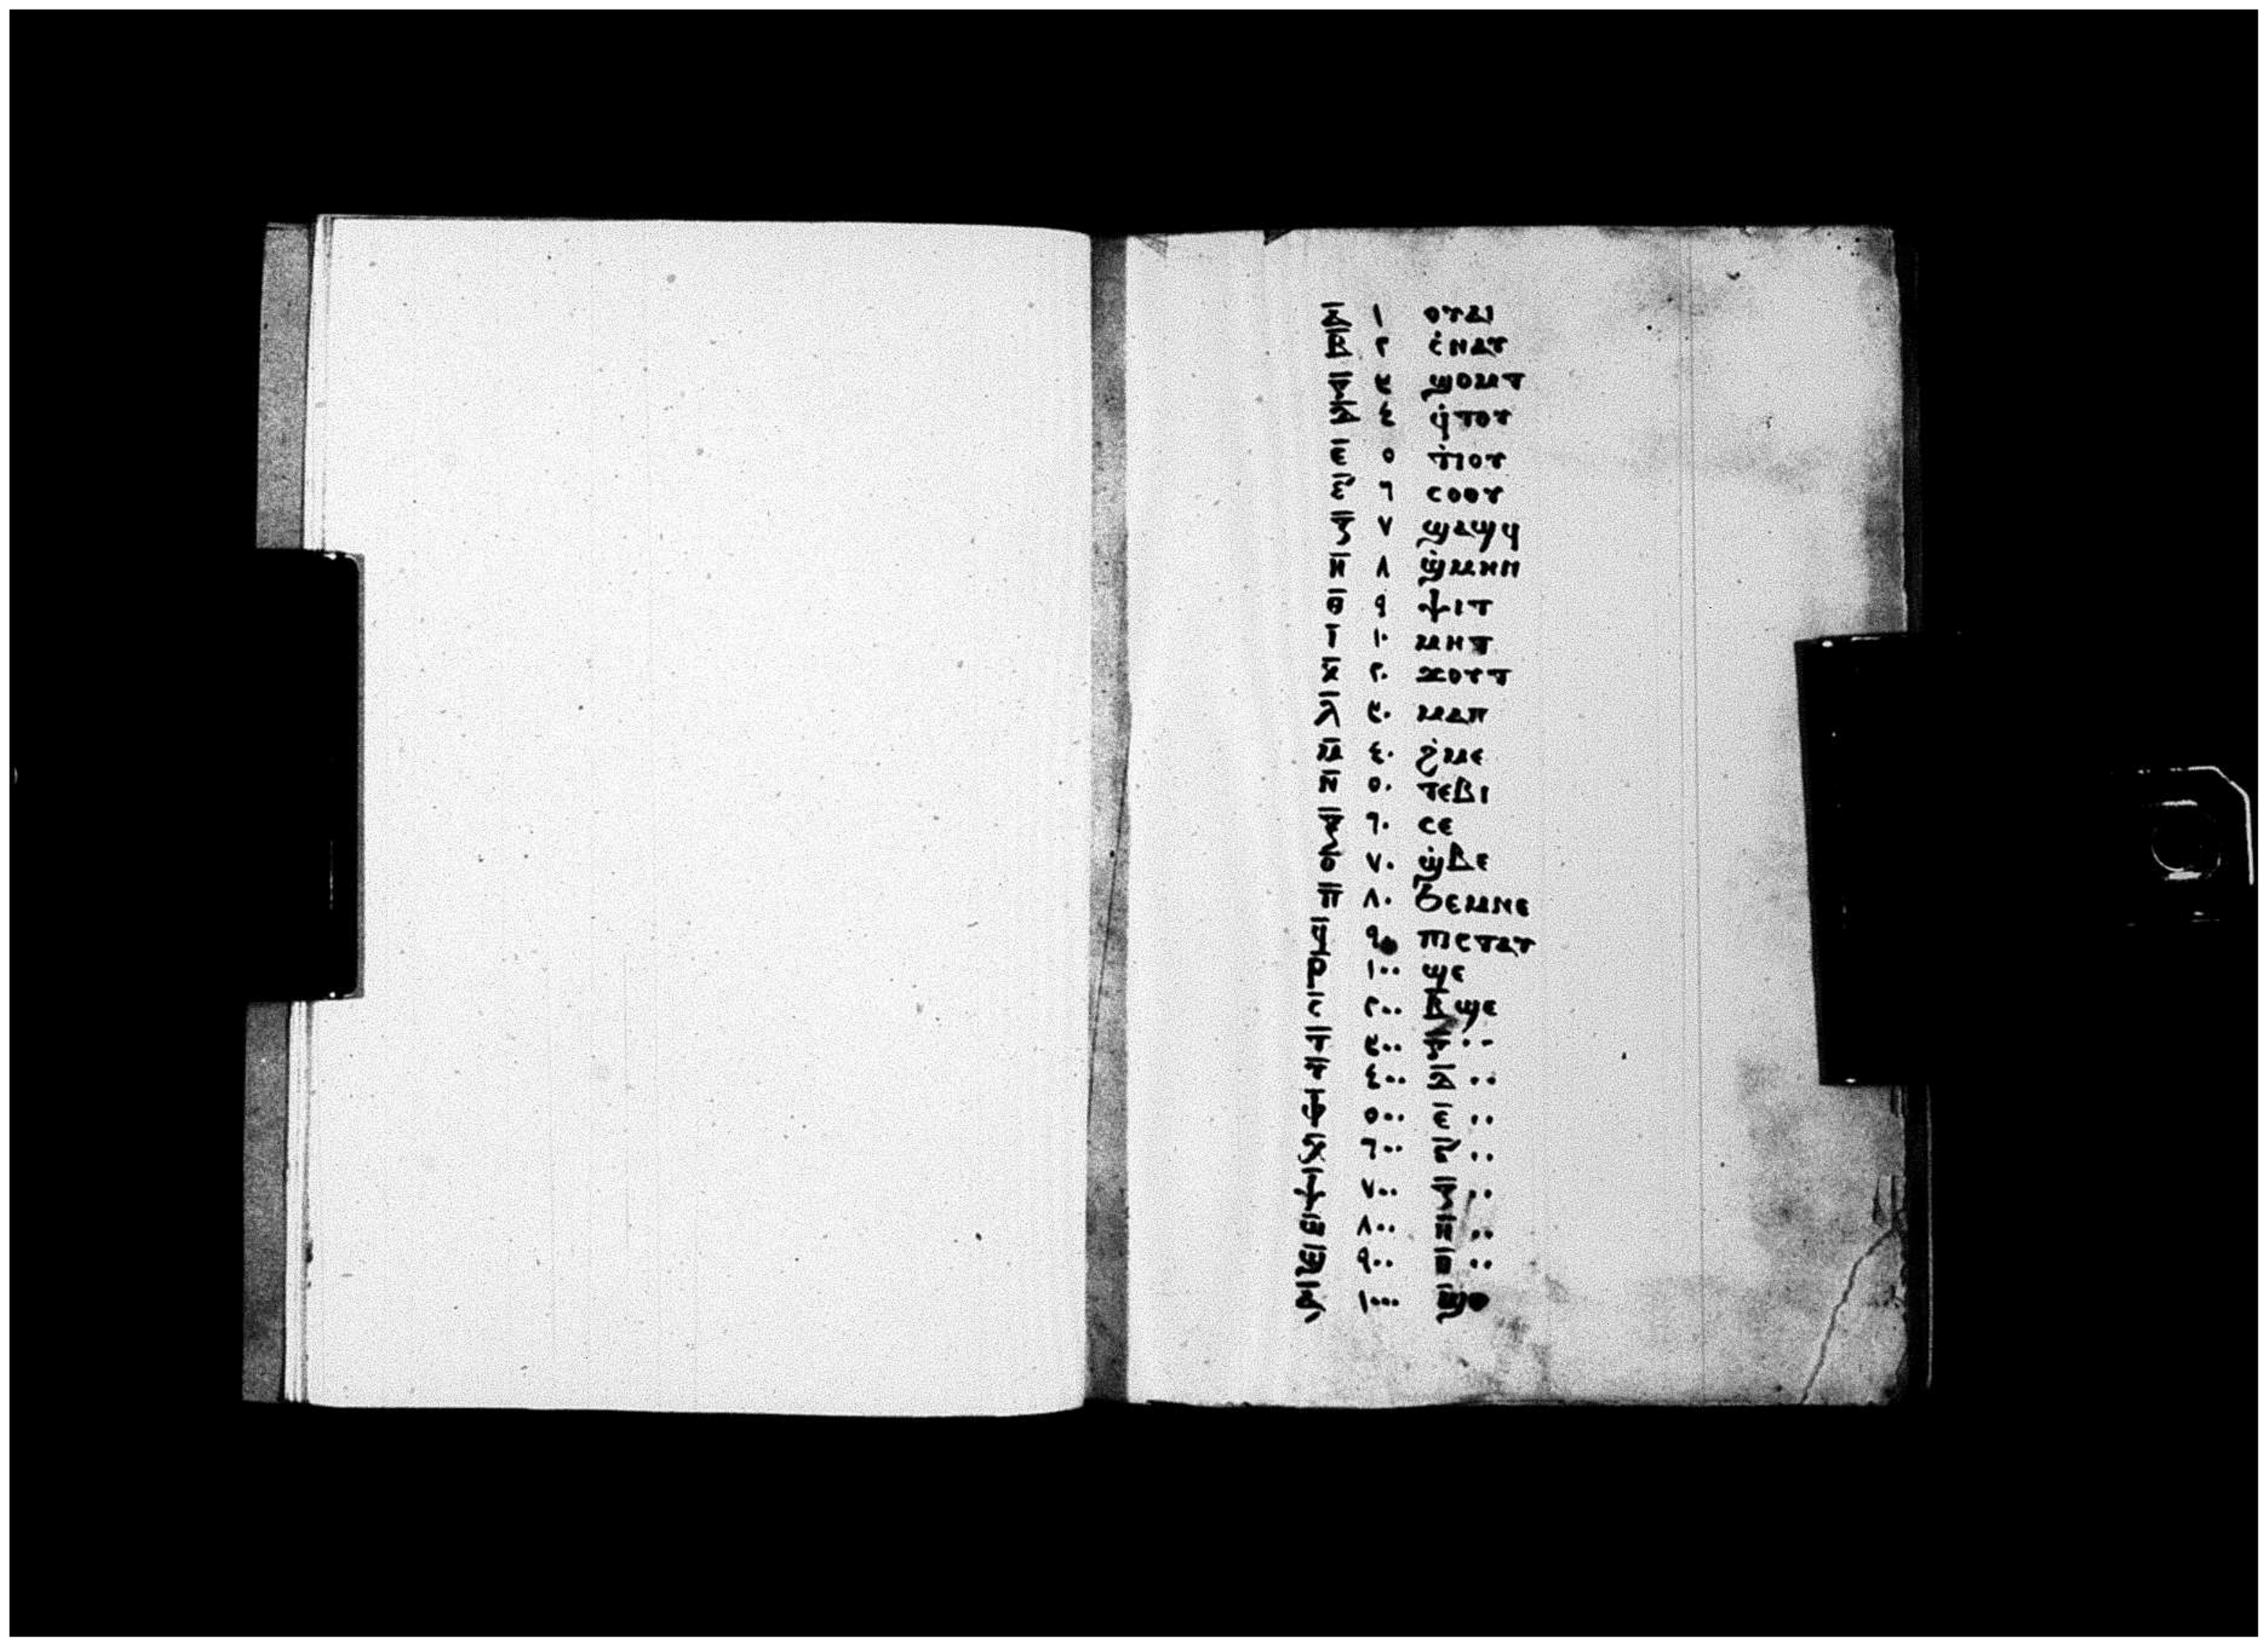 ⲁ̅ ١ ⲟⲩⲁⲓ
ⲃ̅ ٢ ⲥ̇ⲛⲁⲩ
ⲅ̅ ٣ ϣⲟⲙⲧ
ⲇ̅ ٤ ϥ̇ⲧⲟⲩ
ⲉ̅ ٥ ⲧ̇ⲓⲟⲩ
ⲋ̅ ٦ ⲥⲟⲟⲩ
ⲍ̅ ٧ ϣⲁϣϥ
ⲏ̅ ٨ ϣ̇ⲙⲏⲛ
ⲑ̅ ٩ ⲯⲓⲧ
ⲓ̅ ١٠ ⲙⲏⲧ
ⲕ̅ ٢٠ ϫⲟⲩⲧ
ⲗ̅ ٣٠ ⲙⲁⲡ
ⲙ̅ ٤٠ ϩ̇ⲙⲉ
ⲛ̅ ٥٠ ⲧⲉⲃⲓ
ⲝ̅ ٦٠ ⲥⲉ
ⲟ̅ ٧٠ ϣ̇ⲃⲉ
ⲡ̅ ٨٠ ϭⲉⲙⲛⲉ
ϥ̅ ٩٠ ⲡⲓⲥⲧⲁⲩ
ⲣ̅ ١٠٠ ϣⲉ
ⲥ̅ ٢٠٠ ⲃ̅ ϣⲉ
ⲧ̅ ٣٠٠ ⲅ̅ ··
ⲩ̅ ٤٠٠ ⲇ̅ ··
ⲫ̅ ٥٠٠ ⲉ̅ ··
ⲭ̅ ٦٠٠ ⲋ̅ ··
ⲯ̅ ٧٠٠ ⲍ̅ ··
ⲱ̅ ٨٠٠ ⲏ̅ ··
٩٠٠ ⲑ̅ ··
١٠٠٠